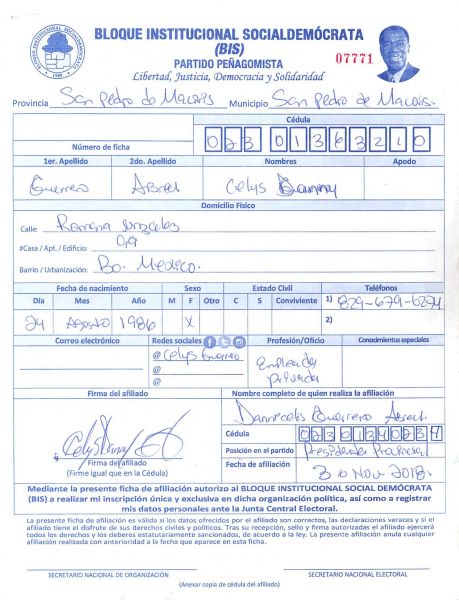 BLOQUE INSTITUCIONAL SOCIALDEMÓCRATA
(BIS)
PARTIDO PEÑAGOMISTA
07771
Libertad, Justicia, Democracia y Solidaridad
Provincia San Pedro de Macoris Municipio San Pedro de Macoris.
Cédula
Número de ficha 023 0136321 0
1er. Apellido 2do. Apellido Nombres Apodo
Guerrero Abreu Celys
Domicilio Físico
Calle:
#Casa / Apt. / Edificio: 09
Barrio / Urbanización: Bo. Medico.
Fecha de nacimiento Sexo Estado Civil Teléfonos
Día Mes Año M F Otro C S Conviviente 1) 829-679-6274
24 Agosto 1986 X 2)
Correo electrónico Redes sociales Profesión/Oficio Conocimientos especiales
@ Celys Guerrero
@
@
Empleada
privada
Firma del afiliado Nombre completo de quien realiza la afiliación
Guerrero Abreu
Cédula 023 0134023 4
Posición en el partido Presidenta Provincial
Firma del afiliado
(Firme igual que en la Cédula)
Fecha de afiliación 30 Nov. 2018.
Mediante la presente ficha de afiliación autorizo al BLOQUE INSTITUCIONAL SOCIAL DEMÓCRATA
(BIS) a realizar mi inscripción única y exclusiva en dicha organización política, así como a registrar
mis datos personales ante la Junta Central Electoral.
La presente ficha de afiliación es válida si los datos ofrecidos por el afiliado son correctos, las declaraciones veraces y si el
afiliado tiene el disfrute de sus derechos civiles y políticos. Tras su recepción, sello y firma autorizadas el afiliado ejercerá
todos los derechos y los deberes estatutariamente sancionados, de acuerdo a la ley. La presente afiliación anula cualquier
afiliación realizada con anterioridad a la fecha que aparece en esta ficha.
SECRETARIO NACIONAL DE ORGANIZACIÓN SECRETARIO NACIONAL ELECTORAL
(Anexar copia de cédula del afiliado)